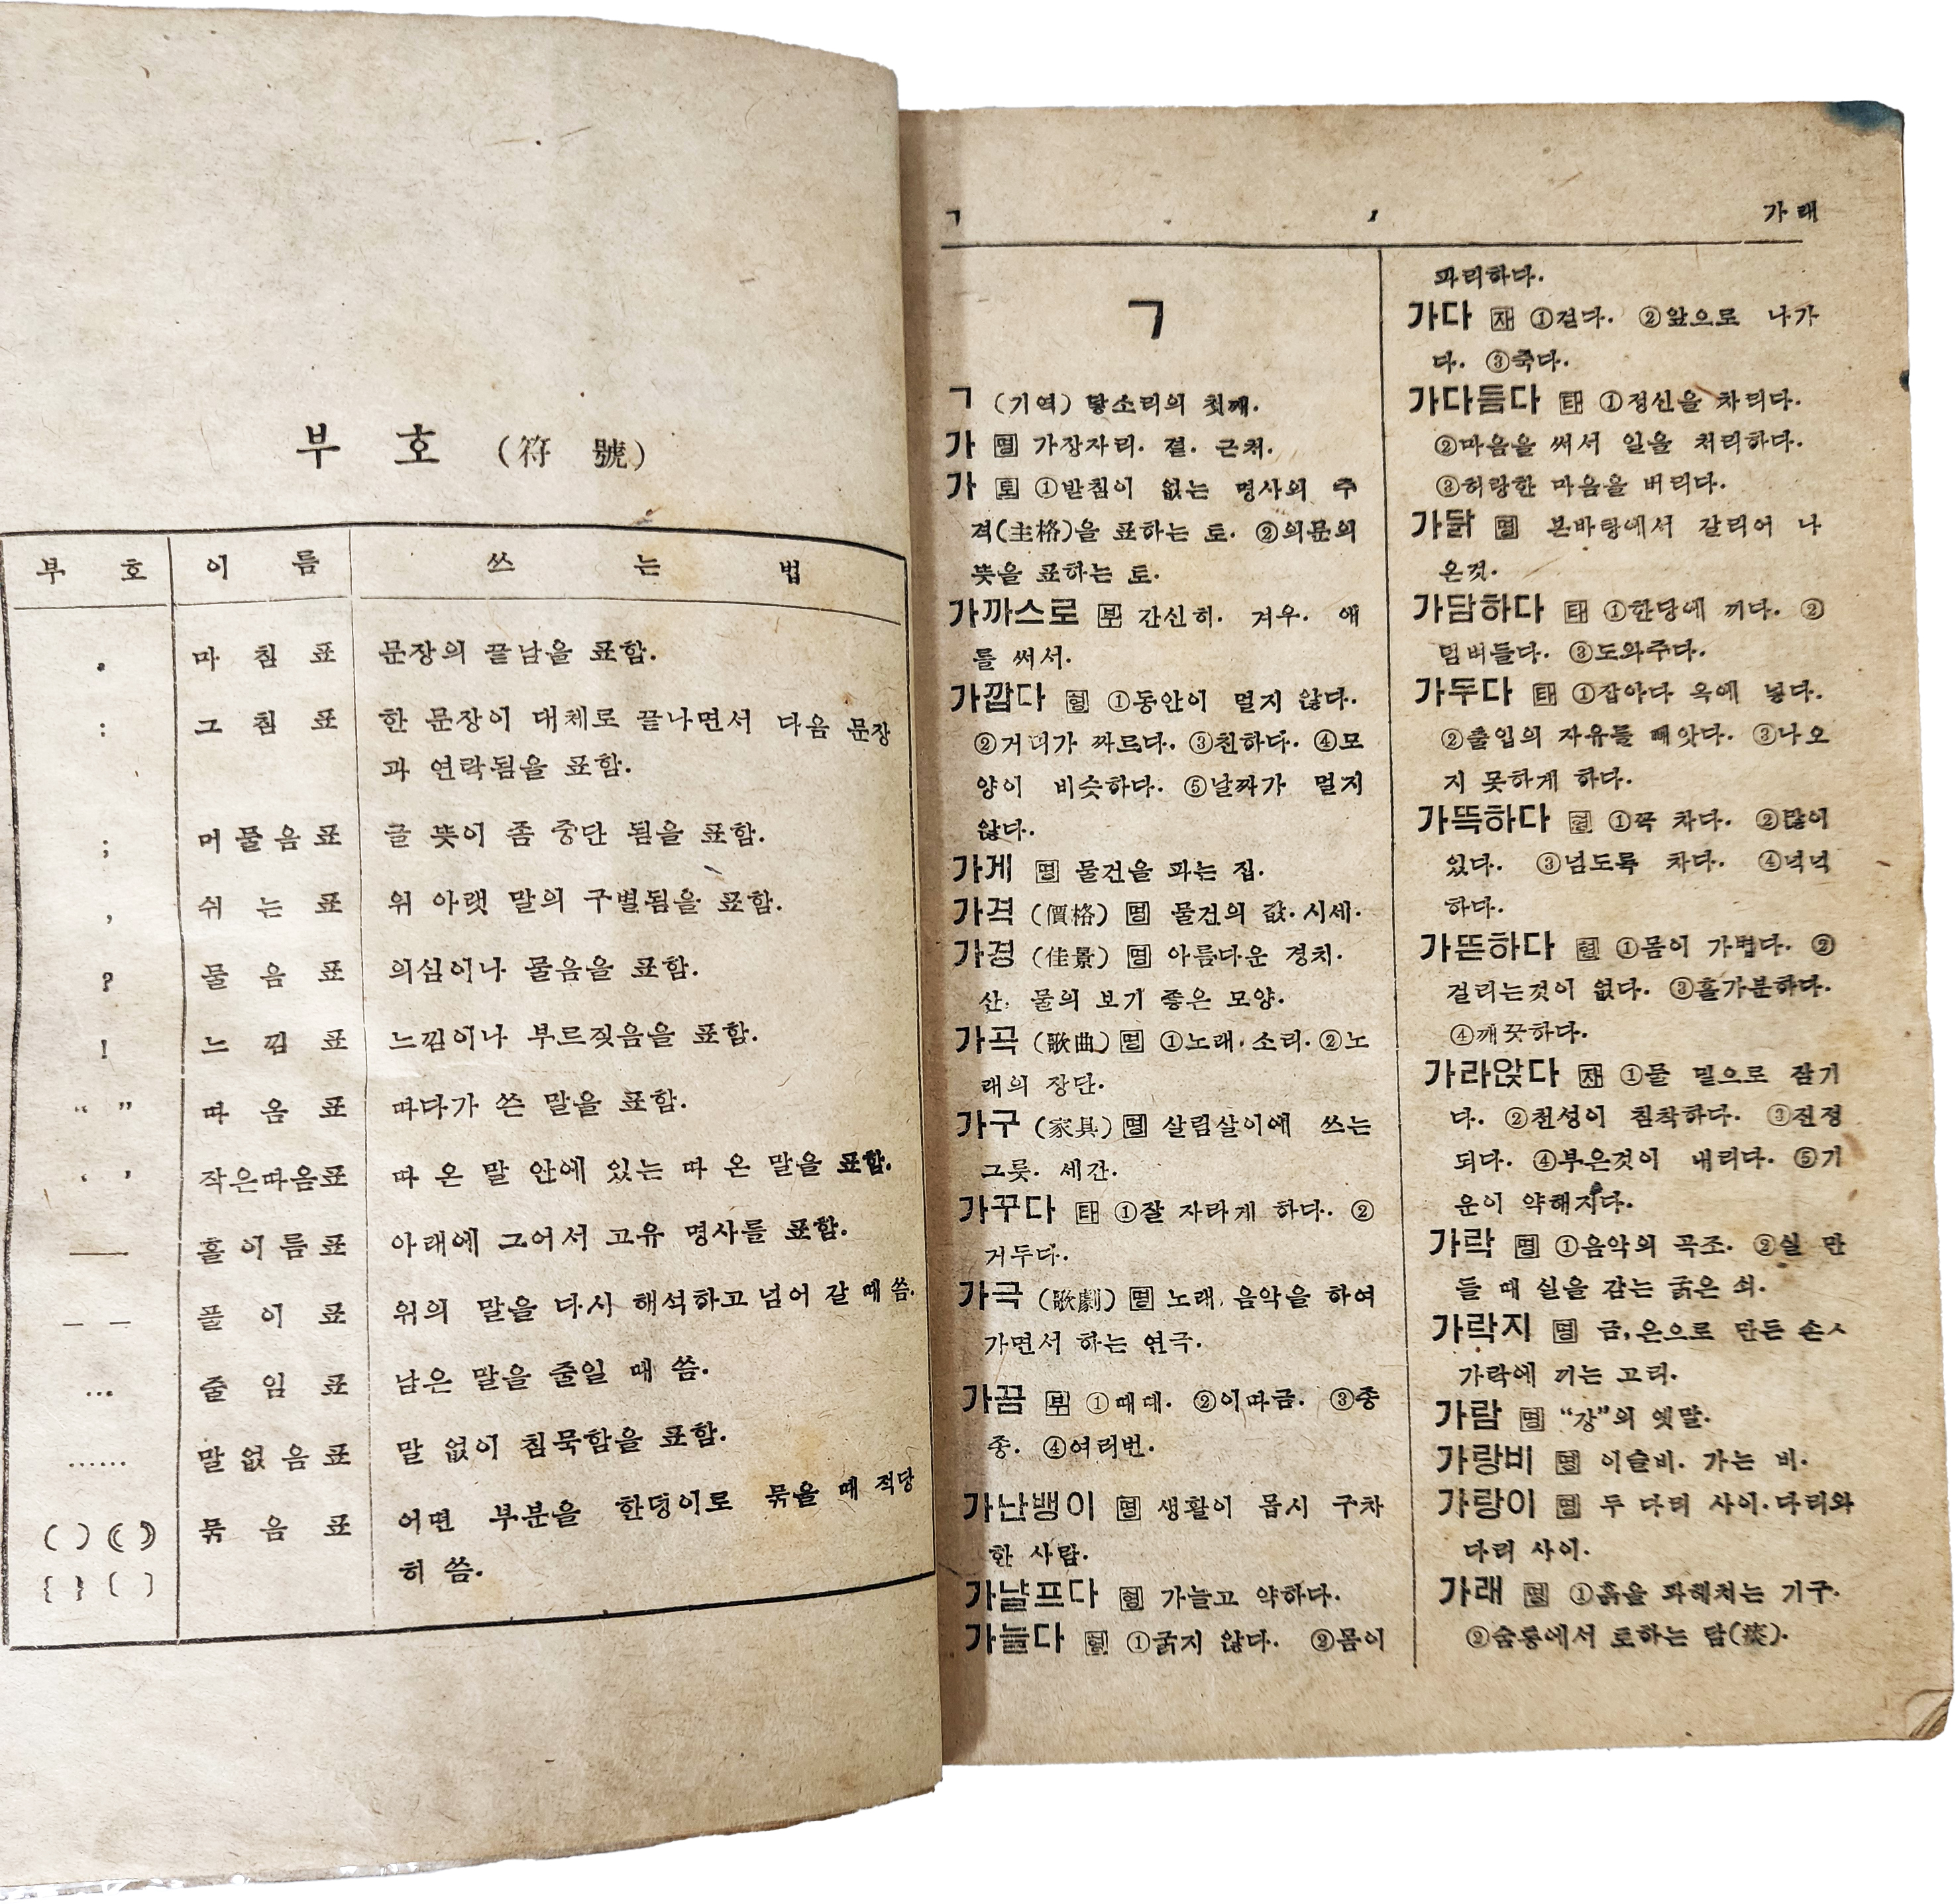 부 호 (符 號)
부 호 이 름 쓰 는 법
. 마 침 표 문장의 끝남을 표함.
: 그 침 표 한 문장이 대체로 끝나면서 다음 문장
과 연락됨을 표함.
; 머물음표 글 뜻이 좀 중단 됨을 표함.
, 쉬 는 표 위 아랫 말의 구별됨을 표함.
? 물 음 표 의심이나 물음을 표함.
! 느 낌 표 느낌이나 부르짖음을 표함.
“ ” 따 옴 표 따다가 쓴 말을 표함.
‘ ’ 작은따옴표 따 온 말 안에 있는 따 온 말을 표함.
—— 홀이름표 아래에 그어서 고유 명사를 표함.
— — 풀 이 표 위의 말을 다시 해석하고 넘어 갈 때 씀.
... 줄 임 표 남은 말을 줄일 때 씀.
...... 말없음표 말 없이 침묵함을 표함.
( ) (( )) 묶 음 표 어떤 부분을 한덩이로 묶을 때 적당
{ } 〔 〕 히 씀.
ㄱ 1 가래
ㄱ
ㄱ (기역) 닿소리의 첫째.
가 명 가장자리. 곁. 근처.
가 토 ①받침이 없는 명사의 주
격(主格)을 표하는 토. ②의문의
뜻을 표하는 토.
가까스로 부 간신히. 겨우. 애
를 써서.
가깝다 형 ①동안이 멀지 않다.
②거리가 짜르다. ③친하다. ④모
양이 비슷하다. ⑤날짜가 멀지
않다.
가게 명 물건을 파는 집.
가격 (價格) 명 물건의 값. 시세.
가경 (佳景) 명 아름다운 경치.
산. 물의 보기 좋은 모양.
가곡 (歌曲) 명 ①노래. 소리. ②노
래의 장단.
가구 (家具) 명 살림살이에 쓰는
그릇. 세간.
가꾸다 타 ①잘 자라게 하다. ②
거두다.
가극 (歌劇) 명 노래, 음악을 하여
가면서 하는 연극.
가끔 부 ①때때. ②이따금. ③종
종. ④여러번.
가난뱅이 명 생활이 몹시 구차
한 사람.
가냘프다 형 가늘고 약하다.
가늘다 형 ①굵지 않다. ②몸이
파리하다.
가다 자 ①걷다. ②앞으로 나가
다. ③죽다.
가다듬다 타 ①정신을 차리다.
②마음을 써서 일을 처리하다.
③허랑한 마음을 버리다.
가닭 명 본바탕에서 갈리어 나
온것.
가담하다 타 ①한당에 끼다. ②
덤버들다. ③도와주다.
가두다 타 ①잡아다 옥에 넣다.
②출입의 자유를 빼앗다. ③나오
지 못하게 하다.
가뜩하다 형 ①꼭 차다. ②많이
있다. ③넘도록 차다. ④넉넉
하다.
가뜬하다 형 ①몸이 가볍다. ②
걸리는것이 없다. ③홀가분하다.
④깨끗하다.
가라앉다 자 ①물 밑으로 잠기
다. ②천성이 침착하다. ③진정
되다. ④부은것이 내리다. ⑤기
운이 약해지다.
가락 명 ①음악의 곡조. ②실 만
들 때 실을 감는 굵은 쇠.
가락지 명 금, 은으로 만든 손ㅅ
가락에 끼는 고리.
가람 명 “강”의 옛말.
가랑비 명 이슬비. 가는 비.
가랑이 명 두 다리 사이. 다리와
다리 사이.
가래 명 ①흙을 파헤치는 기구.
②숨통에서 토하는 담(痰).